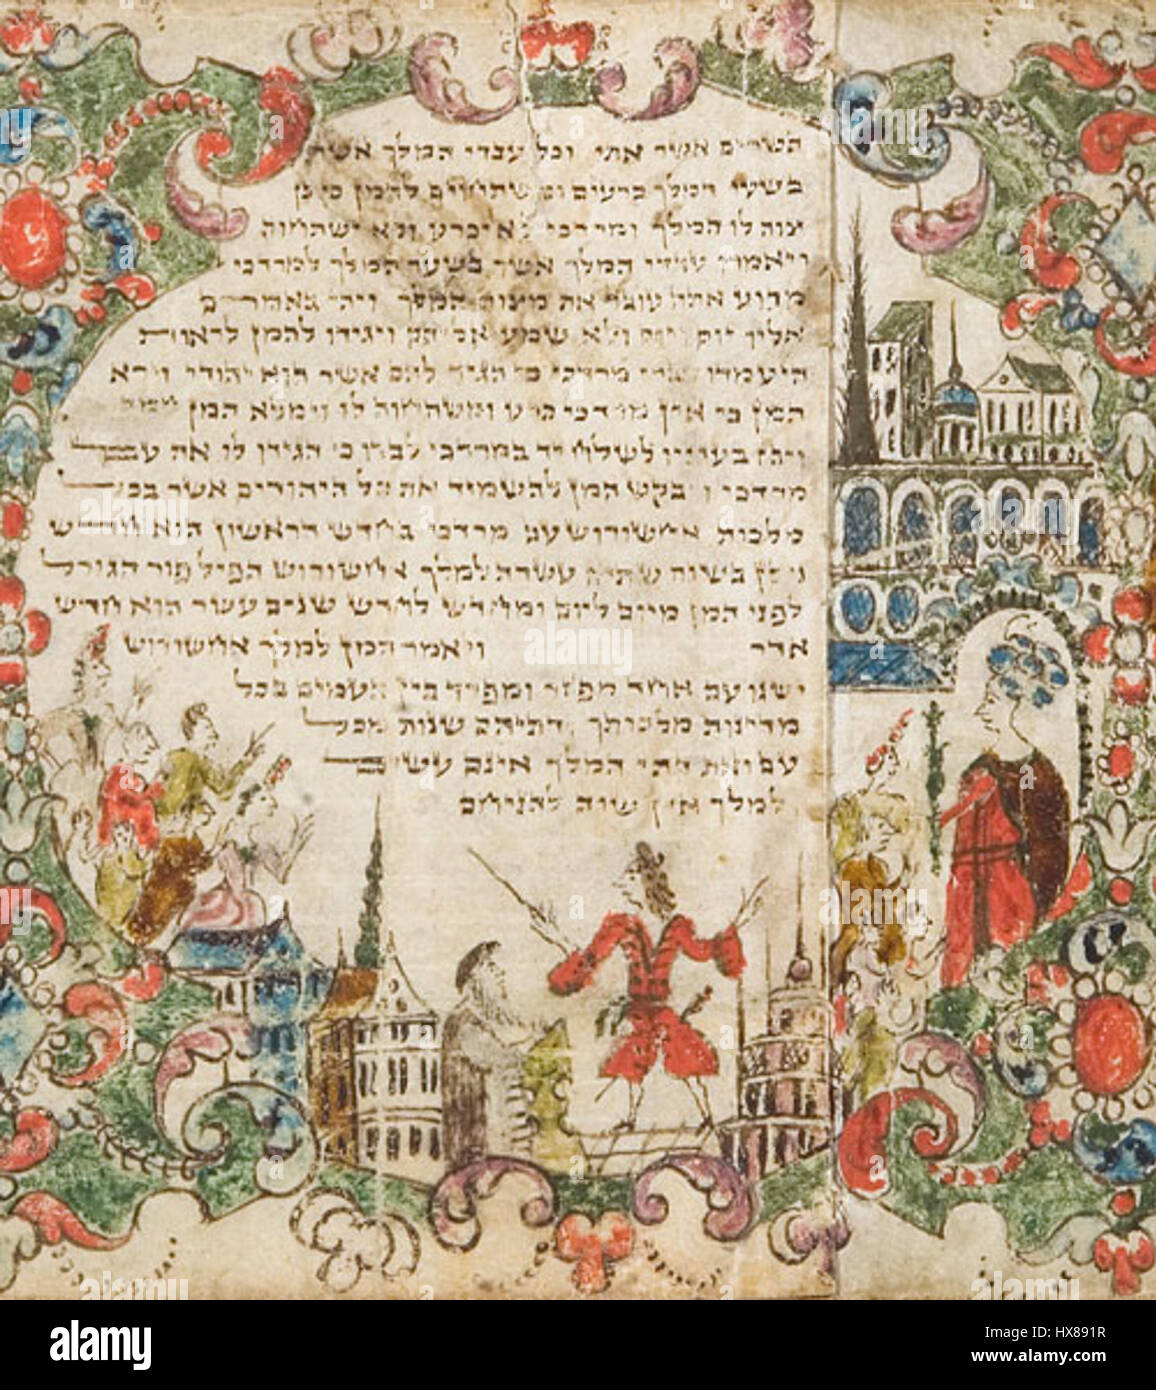 השרים אשר אתו וכל עבדי המלך אשר
בשער המלך כרעים ומשתחוים להמן כי כן
צוה לו המלך ומרדכי לא יכרע ולא ישתחוה
ויאמרו עבדי המלך אשר בשער המלך למרדכי
מדוע אתה עובר את מצות המלך ויהי באמרם
אליו יום ויום ולא שמע אליהם ויגידו להמן לראות
היעמדו דברי מרדכי כי הגיד להם אשר הוא יהודי וירא
המן כי אין מרדכי כרע ומשתחוה לו וימלא המן
ויבז בעיניו לשלח יד במרדכי לבדו כי הגידו לו את עם
מרדכי ויבקש המן להשמיד את כל היהודים אשר בכל
מלכות אחשורוש עם מרדכי בחדש הראשון הוא חדש
ניסן בשנת שתים עשרה למלך אחשורוש הפיל פור הגורל
לפני המן מיום ליום ומחדש לחדש שנים עשר הוא חדש
אדר ויאמר המן למלך אחשורוש
ישנו עם אחד מפזר ומפרד בין העמים בכל
מדינות מלכותך ודתיהם שנות מכל
עם ואת דתי המלך אינם עשים
למלך אין שוה להניחם
alamy
alamy
Image ID: HX891R
www.alamy.com